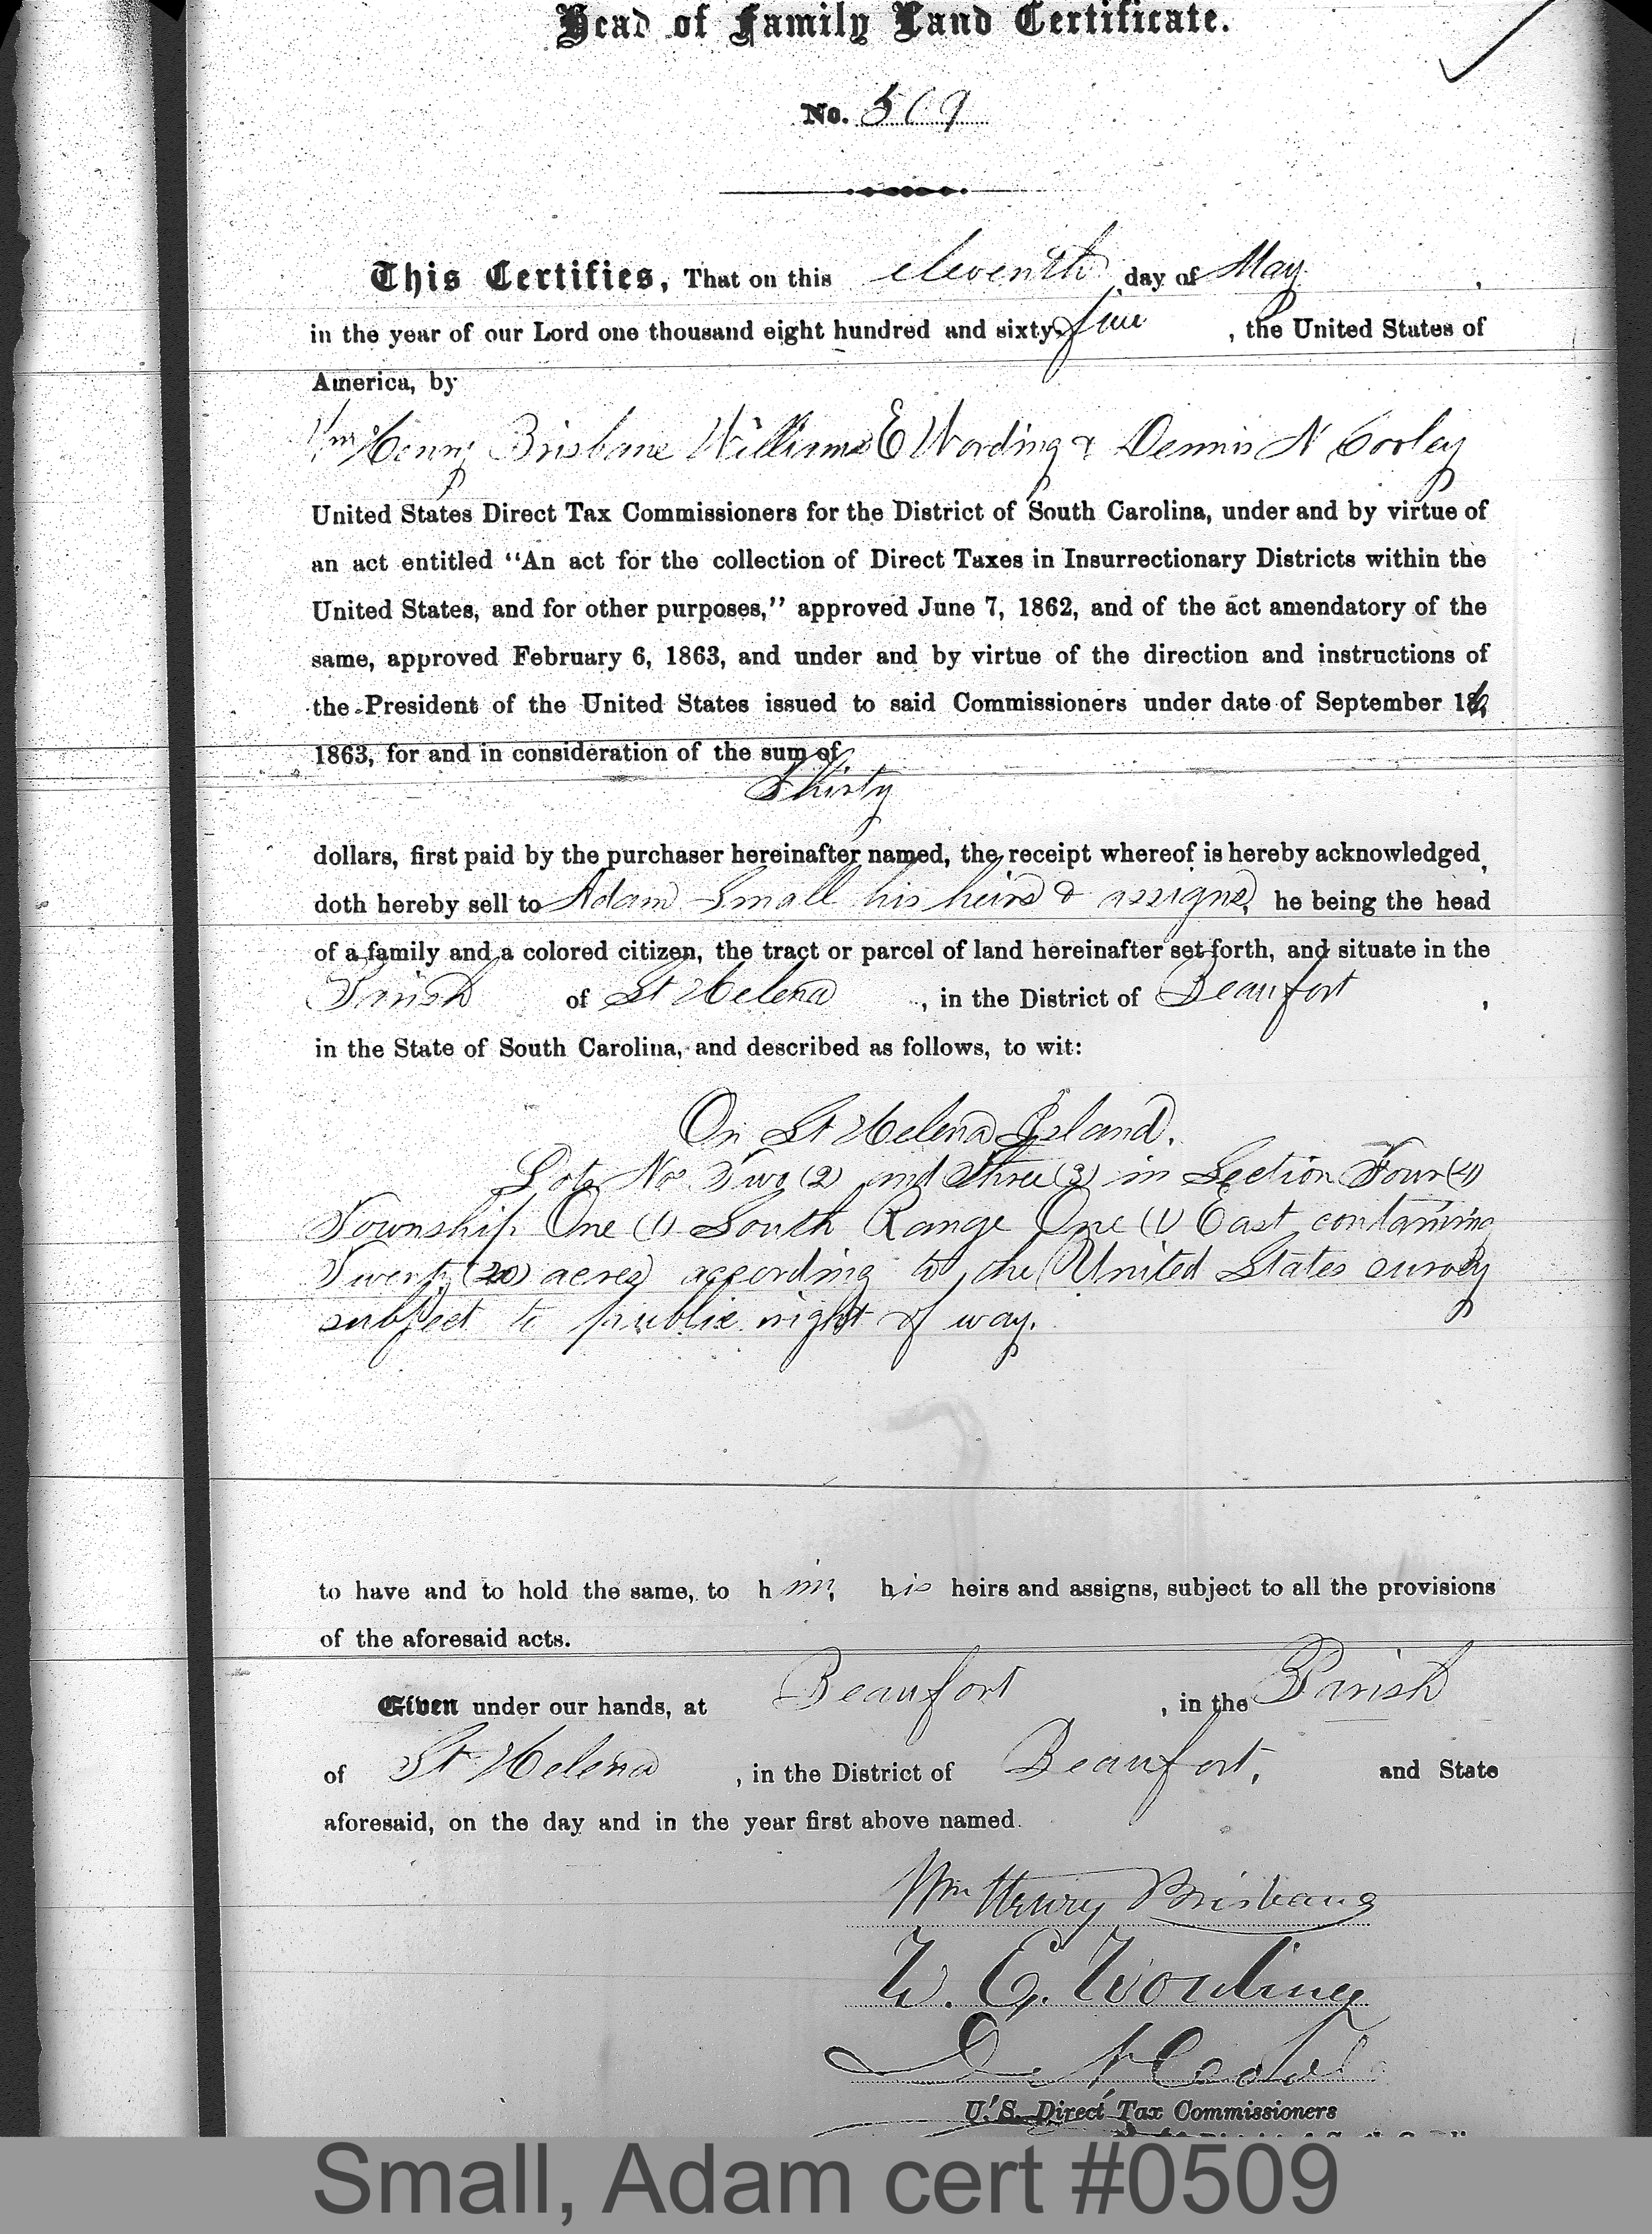 Head of Family Land Certificate.
No. 509
This Certifies, That on this eleventh day of May,
in the year of our Lord one thousand eight hundred and sixty-five, the United States of
America, by
Wm Henry Brisbane William E Wording & Dennis N Cooley
United States Direct Tax Commissioners for the District of South Carolina, under and by virtue of
an act entitled "An act for the collection of Direct Taxes in Insurrectionary Districts within the
United States, and for other purposes," approved June 7, 1862, and of the act amendatory of the
same, approved February 6, 1863, and under and by virtue of the direction and instructions of
the President of the United States issued to said Commissioners under date of September 16,
1863, for and in consideration of the sum of
Thirty
dollars, first paid by the purchaser hereinafter named, the receipt whereof is hereby acknowledged,
doth hereby sell to Adam Small his heirs & assigns, he being the head
of a family and a colored citizen, the tract or parcel of land hereinafter set forth, and situate in the
Parish of St Helena, in the District of Beaufort,
in the State of South Carolina, and described as follows, to wit:
On St Helena Island.
Lots Nos Two (2) and Three (3) in Section Four (4)
Township One (1) South Range One (1) East containing
Twenty (20) acres according to the United States survey
subject to public right of way.
to have and to hold the same, to him, his heirs and assigns, subject to all the provisions
of the aforesaid acts.
Given under our hands, at Beaufort, in the Parish
of St Helena, in the District of Beaufort, and State
aforesaid, on the day and in the year first above named.
Wm Henry Brisbane
W. E. Wording
D. N. Cooley
U. S. Direct Tax Commissioners
Small, Adam cert #0509